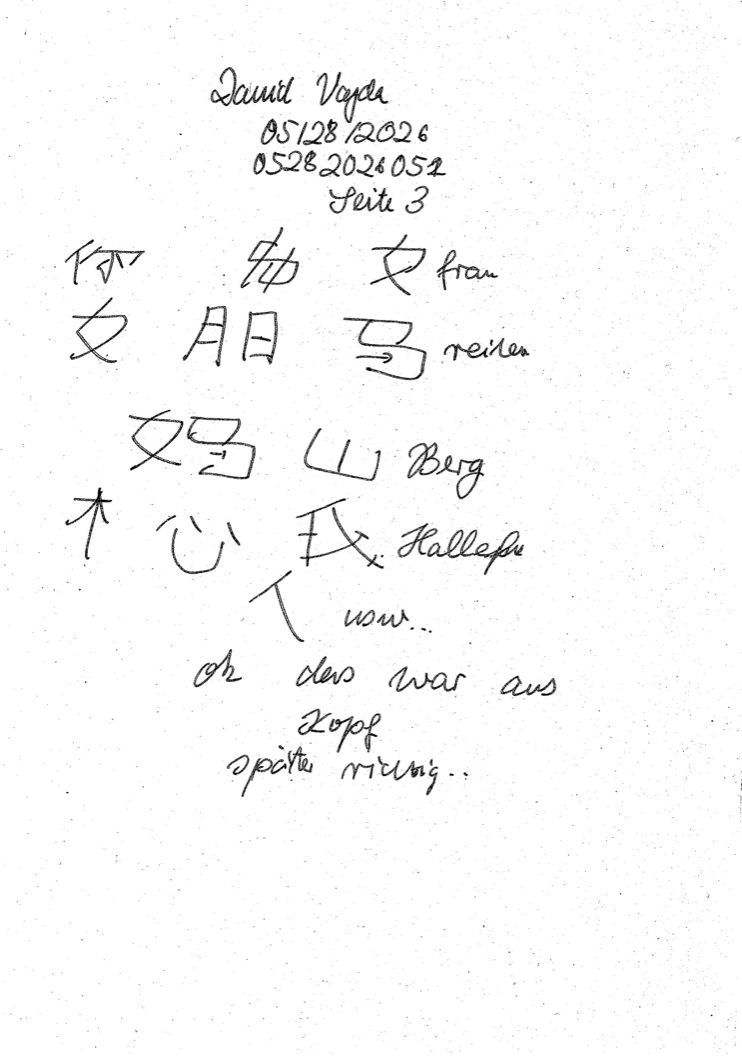 David Vajda
05/28/2026
05282026051
Seite 3
你 女 frau
女 月日 马 reiten
妈 山 Berg
个 心 我
人 usw...
ok das war aus
Kopf
später richtig..